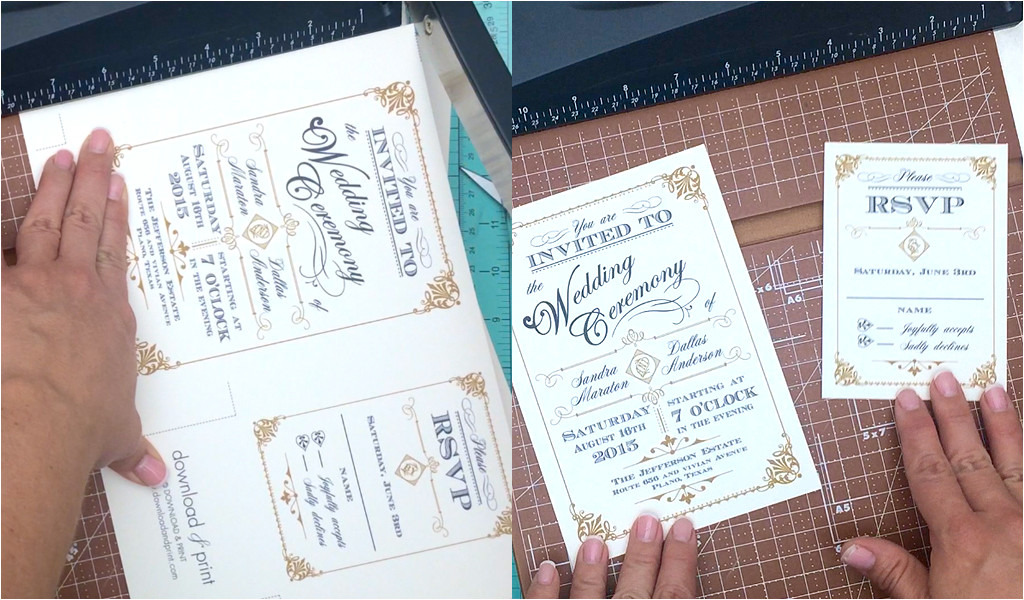 You are
INVITED TO
the
Wedding
Ceremony
of
Sandra
Maraton
Dallas
Anderson
SATURDAY
AUGUST 16TH
2015
STARTING AT
7 O'CLOCK
IN THE EVENING
THE JEFFERSON ESTATE
ROUTE 656 AND VIVIAN AVENUE
PLANO, TEXAS
Please
RSVP
SATURDAY, JUNE 3RD
NAME
Joyfully accepts
Sadly declines
download & print
© DOWNLOAD & PRINT
downloadandprint.com
You are
INVITED TO
the
Wedding
Ceremony
of
Sandra
Maraton
Dallas
Anderson
SATURDAY
AUGUST 16TH
2015
STARTING AT
7 O'CLOCK
IN THE EVENING
THE JEFFERSON ESTATE
ROUTE 656 AND VIVIAN AVENUE
PLANO, TEXAS
Please
RSVP
SATURDAY, JUNE 3RD
NAME
Joyfully accepts
Sadly declines
x6
A6
5x7
A5